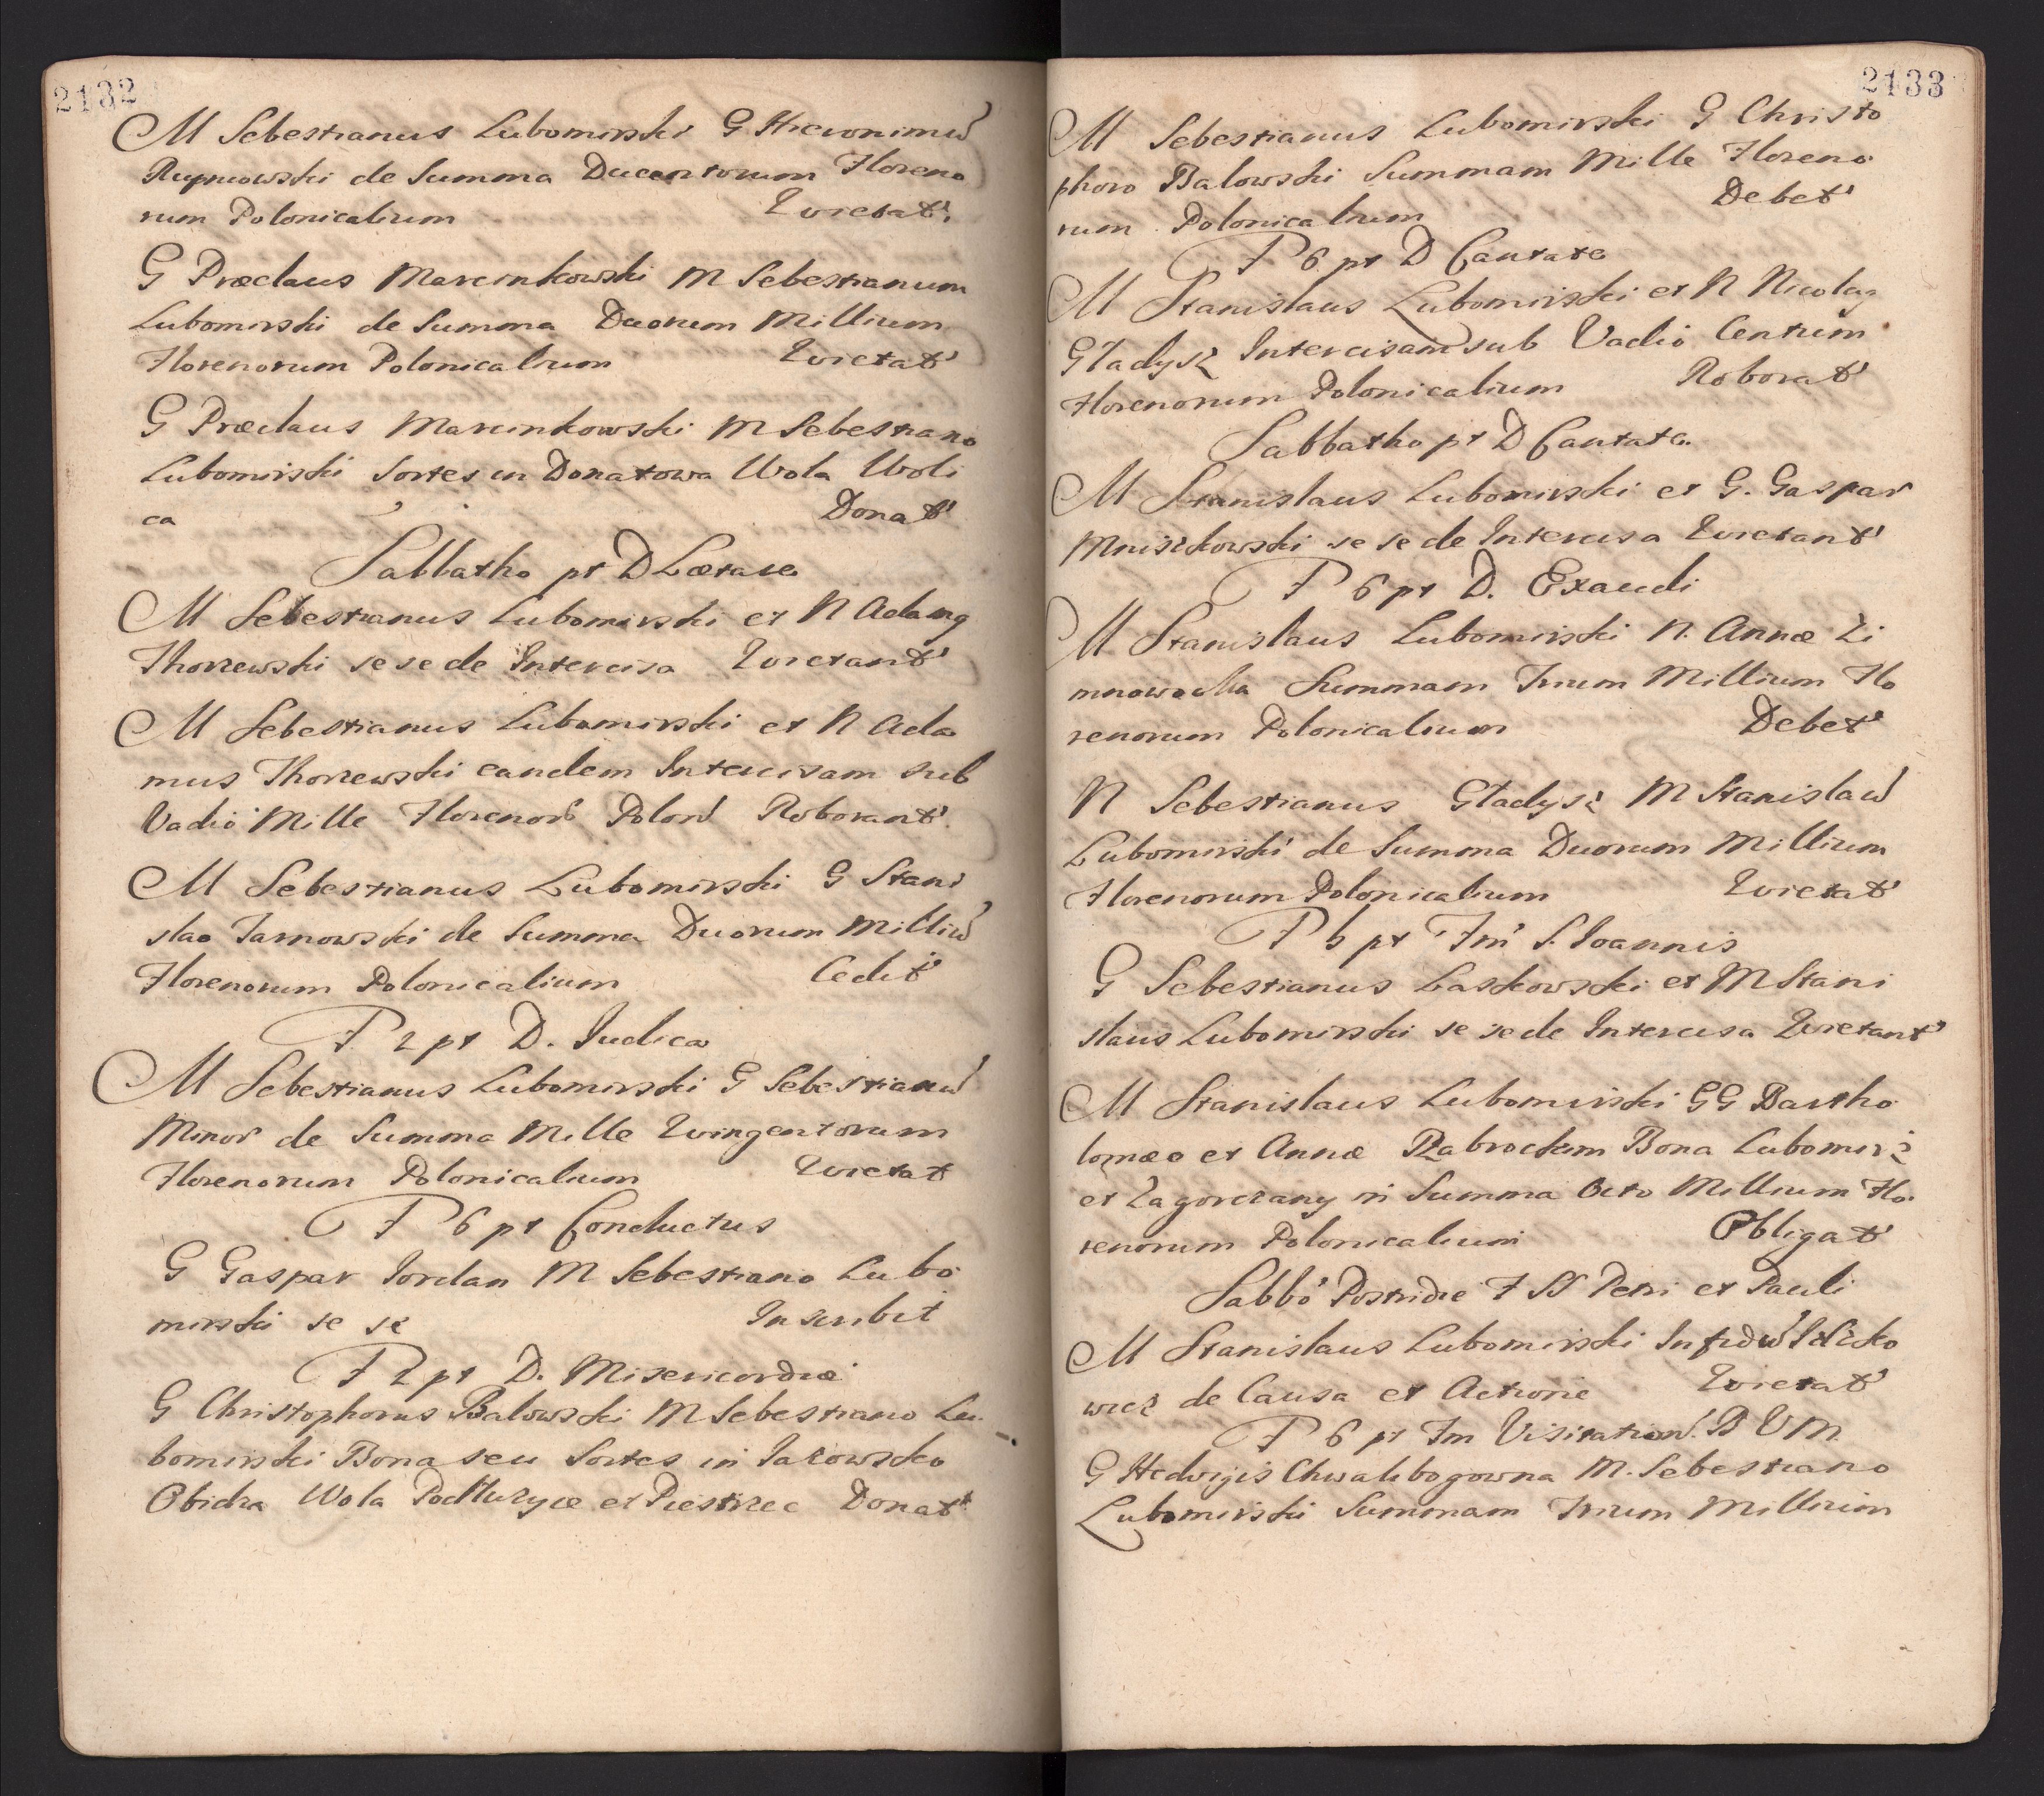 2132
M Sebestianus Lubomirski G Hieronimū
de Summa Ducentorum Floreno
rum Polonicalium Quietat
G Præclaus Marcinkowski M Sebestianum
Lubomirski de Summa Duorum Millium
Florenorum Polonicalium Quietat
G Præclaus Marcinkowski M Sebestiano
Lubomirski Sortes in Donatowa Wola Woli
ca Donat
Sabbatho pt D Lætare
M Sebestianus Lubomirski et N Adamg
Thorzewski se se de Intercisa Quietant
M Sebestianus Lubomirski et N Ada
mus Thorzewski eandem Intercisam sub
Vadio Mille Florenor Polon Roborant
M Sebestianus Lubomirski G Stani
slao Tarnowski de Summa Duorum Milliū
Florenorum Polonicalium Cedit
F 2 pt D. Judica
M Sebestianus Lubomirski G Sebestianū
Minor de Summa Mille Quingentorum
Florenorum Polonicalium Quietat
F 6 pt Conductus
G Gaspar Jordan M Sebestiano Lubo
mirski se se Inscribit
F 2 pt D. Misericordiæ
G Christophorus Balowski M Sebestiano Lu
bomirski Bona seu Sortes in
Obidza Wola et Donat
2133
M Sebestianus Lubomirski G Christo
phoro Balowski Summam Mille Floreno
rum Polonicalium Debet
F 6 pt D Cantate
M Stanislaus Lubomirski et N Nicolag
Gładysz Intercisam sub Vadio Centum
Florenorum Polonicalium Roborat
Sabbatho pt D Cantate
M Stanislaus Lubomirski et G. Gaspar
Mniszkowski se se de Intercisa Quietant
F 6 pt D. Exaudi
M Stanislaus Lubomirski N. Annæ Zi
mnowodka Summam Trium Millium Flo
renorum Polonicalium Debet
N Sebestianus Gładysz M Stanislaū
Lubomirski de Summa Duorum Millium
Florenorum Polonicalium Quietat
F 6 pt Fm S. Joannis
G Sebestianus Laskowski et M Stani
slaus Lubomirski se se de Intercisa Quietant
M Stanislaus Lubomirski GG Bartho
lomæo et Annæ Bona Lubomirz
et Zagorzany in Summa Octo Millium Flo
renorum Polonicalium Obligat
Sabbo Postridie F SS Petri et Pauli
M Stanislaus Lubomirski
wicz de Causa et Actione Quietat
F 6 pt Fm Visitation. B V M.
G Hedvigis Chwalibogowna M. Sebestiano
Lubomirski Summam Trium Millium